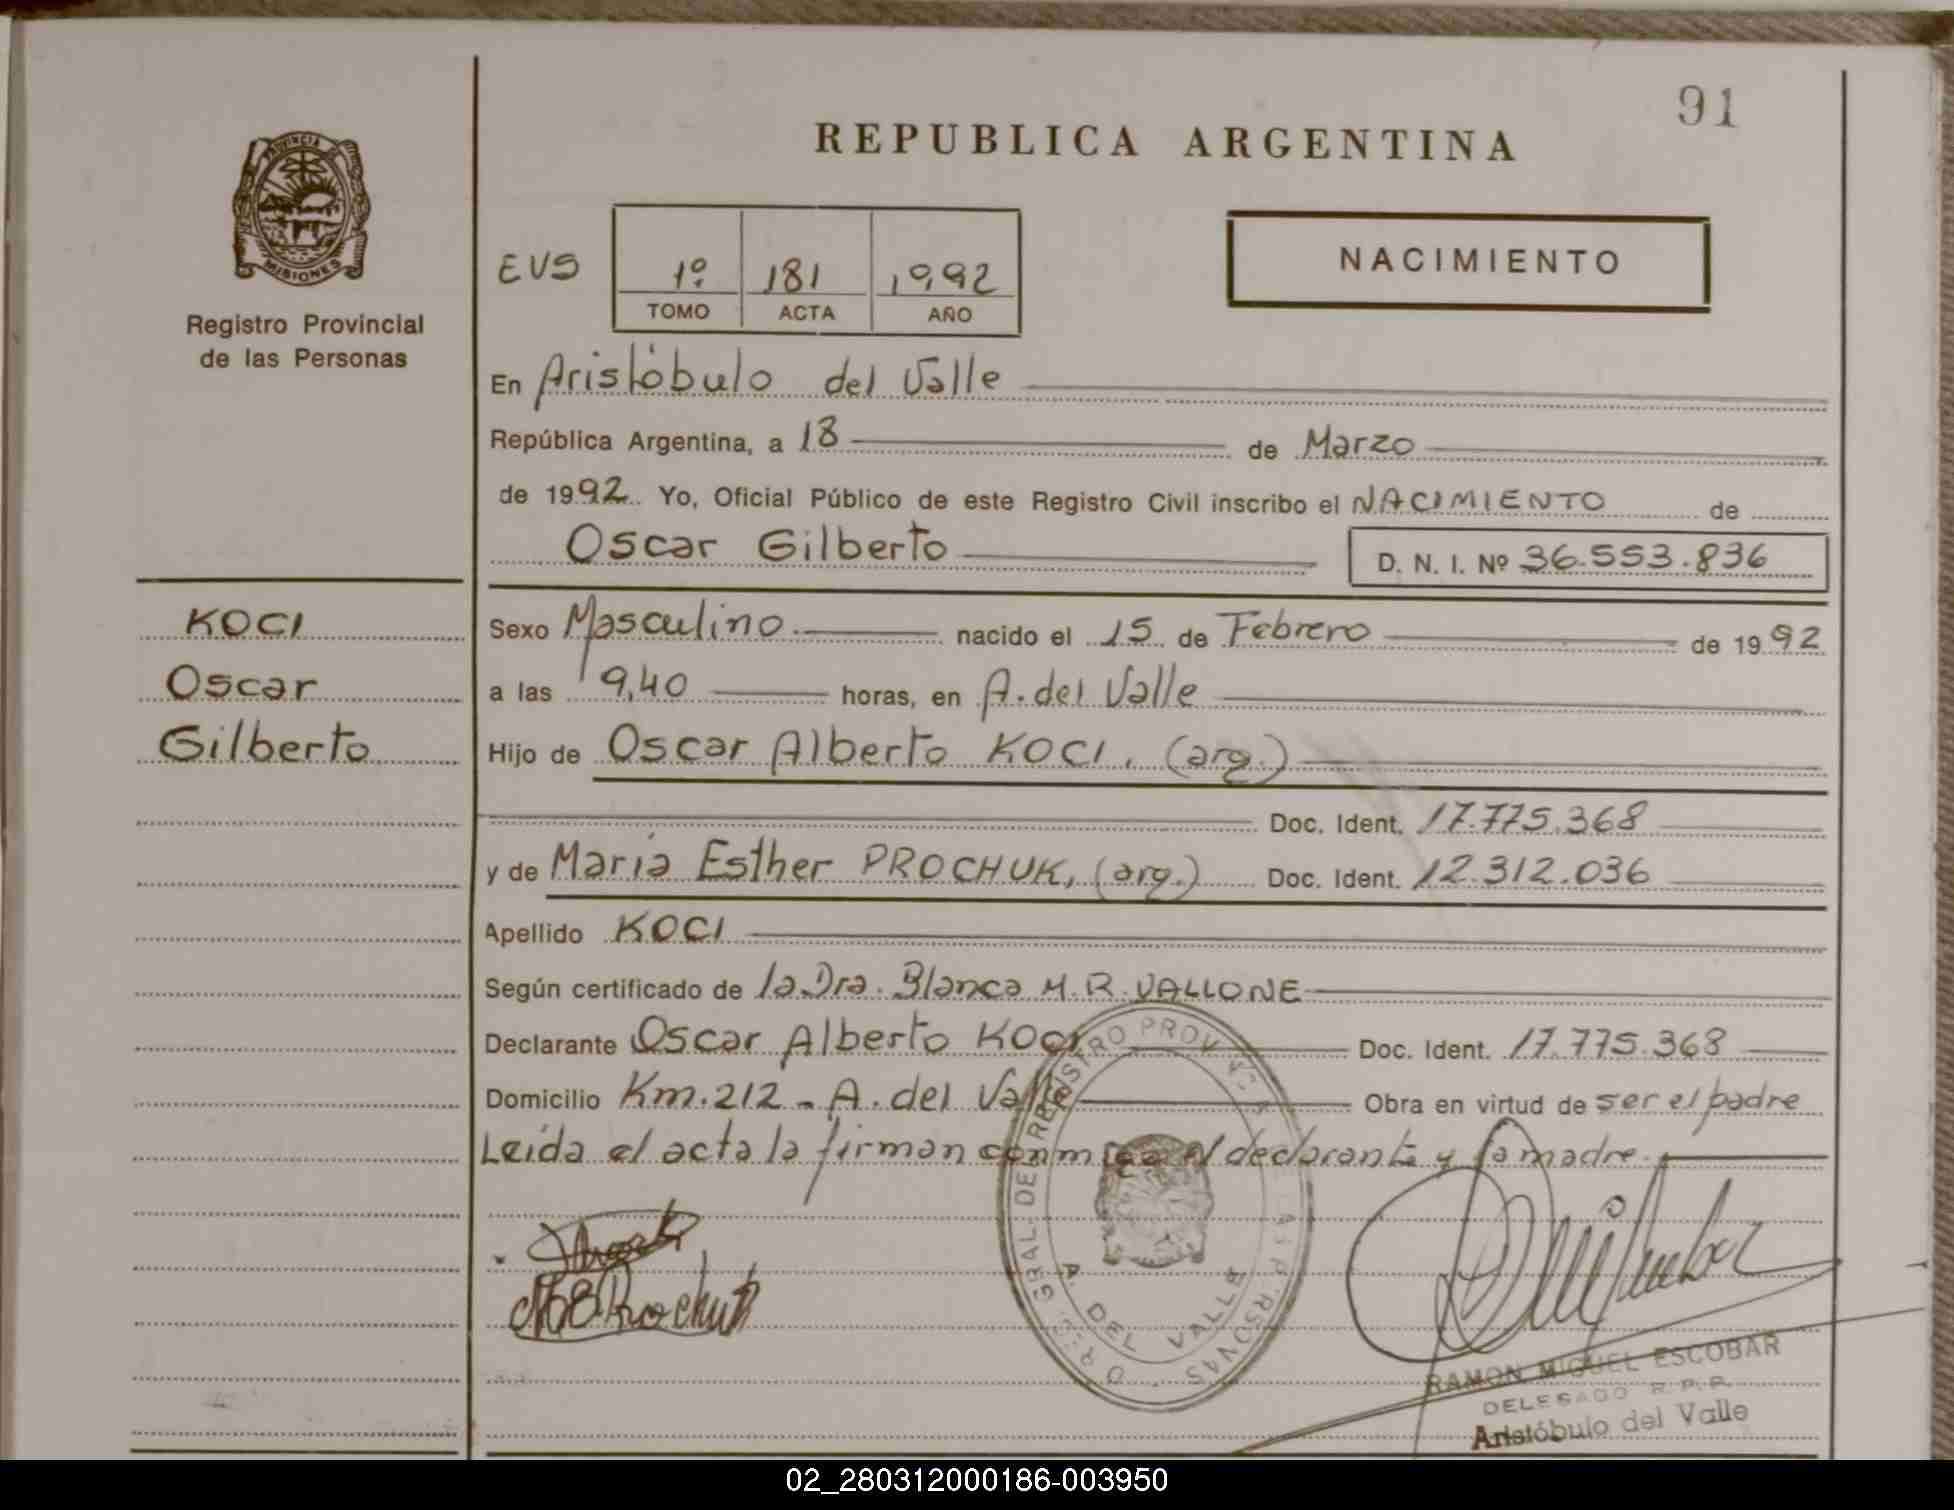 91
REPUBLICA ARGENTINA
PROVINCIA DE
MISIONES
Registro Provincial
de las Personas
EVS
1º 181 1992
TOMO ACTA AÑO
NACIMIENTO
En Aristóbulo del Valle
República Argentina, a 18 de Marzo
de 1992 Yo, Oficial Público de este Registro Civil inscribo el NACIMIENTO de
Oscar Gilberto D. N. I. Nº 36.553.836
KOCI
Oscar
Gilberto
Sexo Masculino nacido el 15 de Febrero de 1992
a las 9,40 horas, en A. del Valle
Hijo de Oscar Alberto KOCI, (arg.)
Doc. Ident. 17.775.368
y de Maria Esther PROCHUK, (arg.) Doc. Ident. 12.312.036
Apellido KOCI
Según certificado de la Dra. Blanca M. R. VALLONE
Declarante Oscar Alberto KOCI Doc. Ident. 17.775.368
Domicilio Km. 212 - A. del Valle Obra en virtud de ser el padre
Leída el acta la firman conmigo el declarante y la madre.
REGISTRO PROV.
A DEL VALLE
RAMON MIGUEL ESCOBAR
DELEGADO R. P. P.
Aristóbulo del Valle
02_280312000186-003950